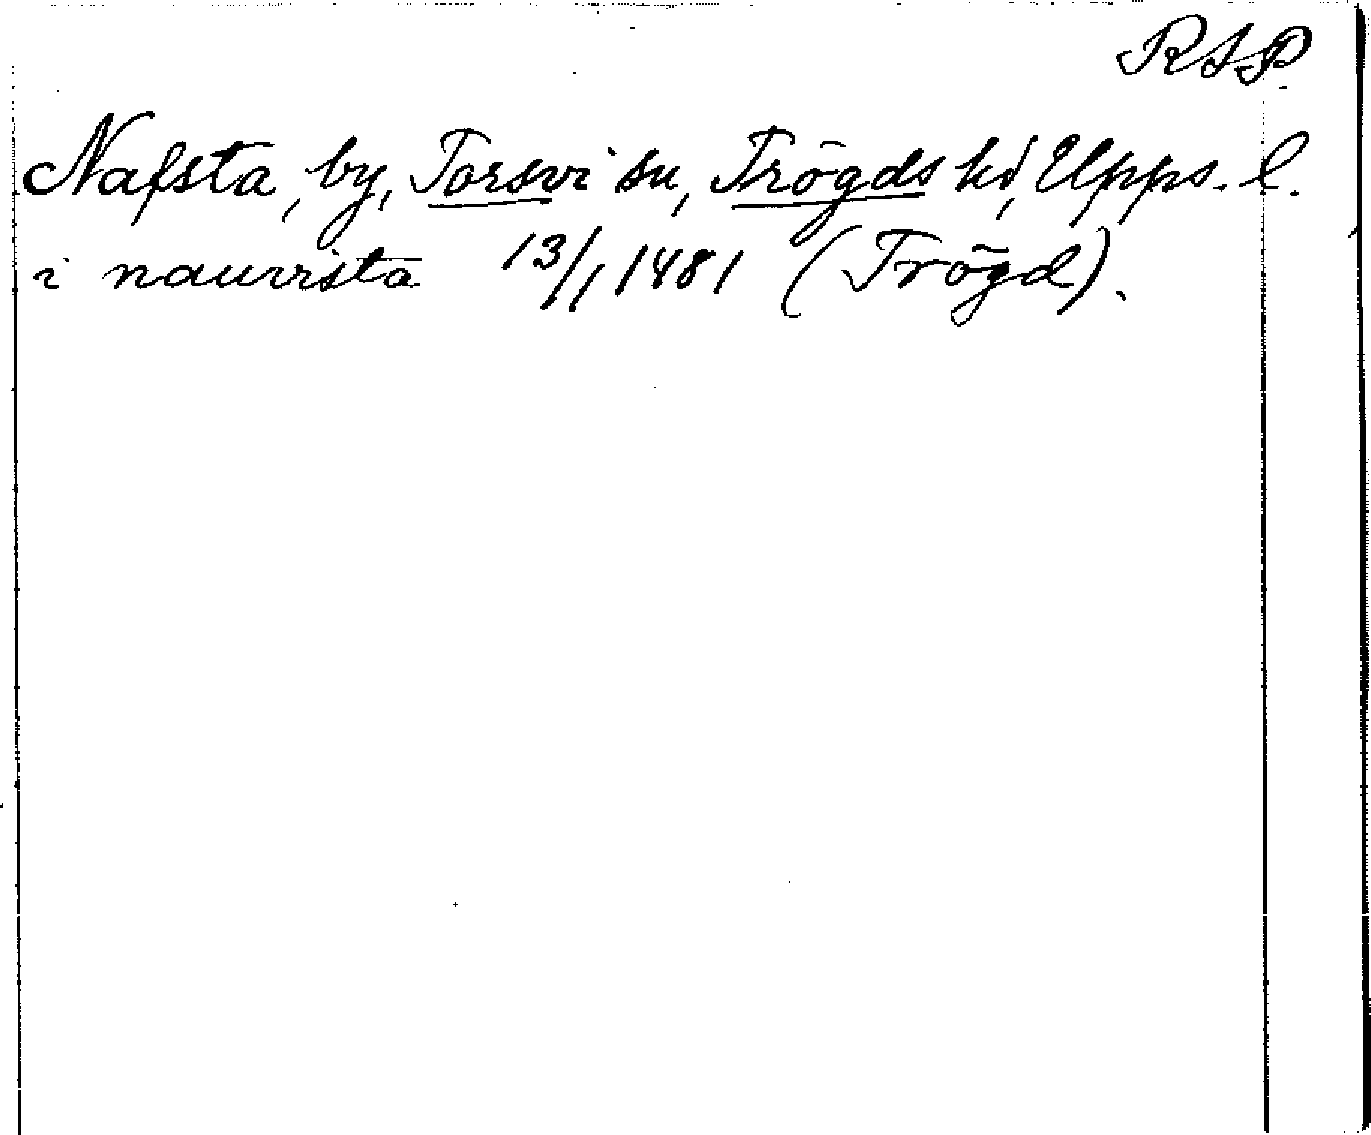 RSP
Nafsta, by, Torsvi sn, Trögds hd, Upps. l.
i naurista 13/1 1481 (Trögd).